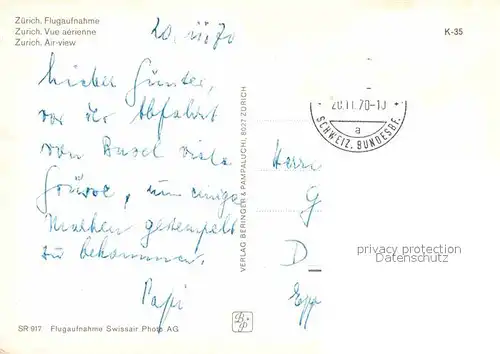 Zürich. Flugaufnahme
Zurich. Vue aérienne
Zurich. Air-view
K-35
Lieber Günter,
vor der Abfahrt
von Basel viele
Grüsse, um einige
Marken gestempelt
zu bekommen.
Papi
VERLAG BERINGER & PAMPALUCHI, 8027 ZÜRICH
70-10
SCHWEIZ. BUNDESBF.
a
Herrn
G
D
Epp
privacy protection
Datenschutz
B&P
SR 917 Flugaufnahme Swissair Photo AG